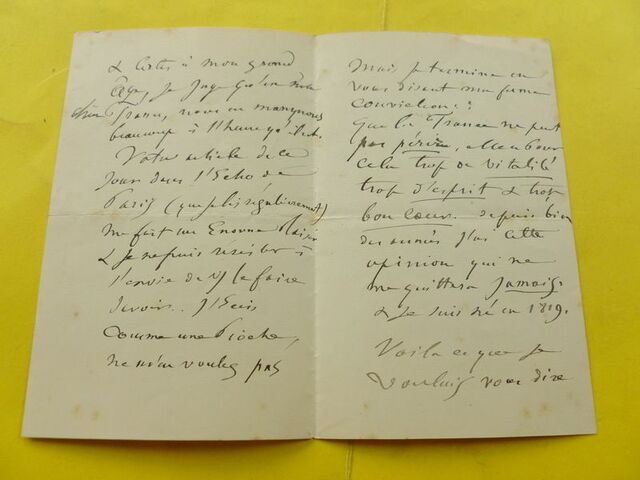 & certes à mon grand
Âge, je juge qu'en notre
chère France, nous en manquons
beaucoup à l'heure qu'il est.
Votre article de ce
Jour dans l'Echo de
Paris (que je lis régulièrement)
me fait un Enorme Plaisir
& Je ne puis résister à
l'envie de vs le faire
savoir.. J'Ecris
Comme une Pioche,
ne m'en voulez pas
Mais je termine en
vous disant ma ferme
conviction::
Que la France ne peut
pas périr, elle a pour
cela trop de vitalité
trop d'esprit & trop
bon cœur. depuis bien
des années j'ai cette
opinion qui ne
me quittera Jamais.
& Je suis né en 1819.
Voilà ce que je
voulais vous dire